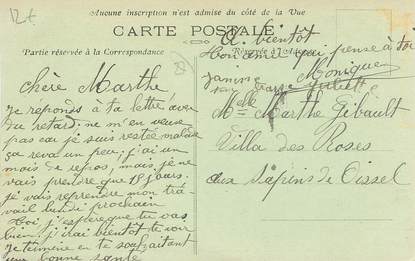 12 f
Aucune inscription n'est admise du côté de la Vue
CARTE POSTALE
Partie réservée à la Correspondance
Réservée à l'Adresse
chère Marthe
Je réponds à ta lettre avec
du retard: ne m'en veux
pas car je suis resté malade
ça reva un peu. j'ai un
mois de repos, mais je ne
vais prendre que 18 jours.
je vais reprendre mon tra-
vail lundi prochain
toi j'espère que tu vas
bien. j'irai bientôt te voir
Je termine en te souhaitant
une bonne santé
A. bientôt
ton amie qui pense à toi
Monique
Melle Marthe Gibault
Villa des Roses
aux Sapins de Oissel